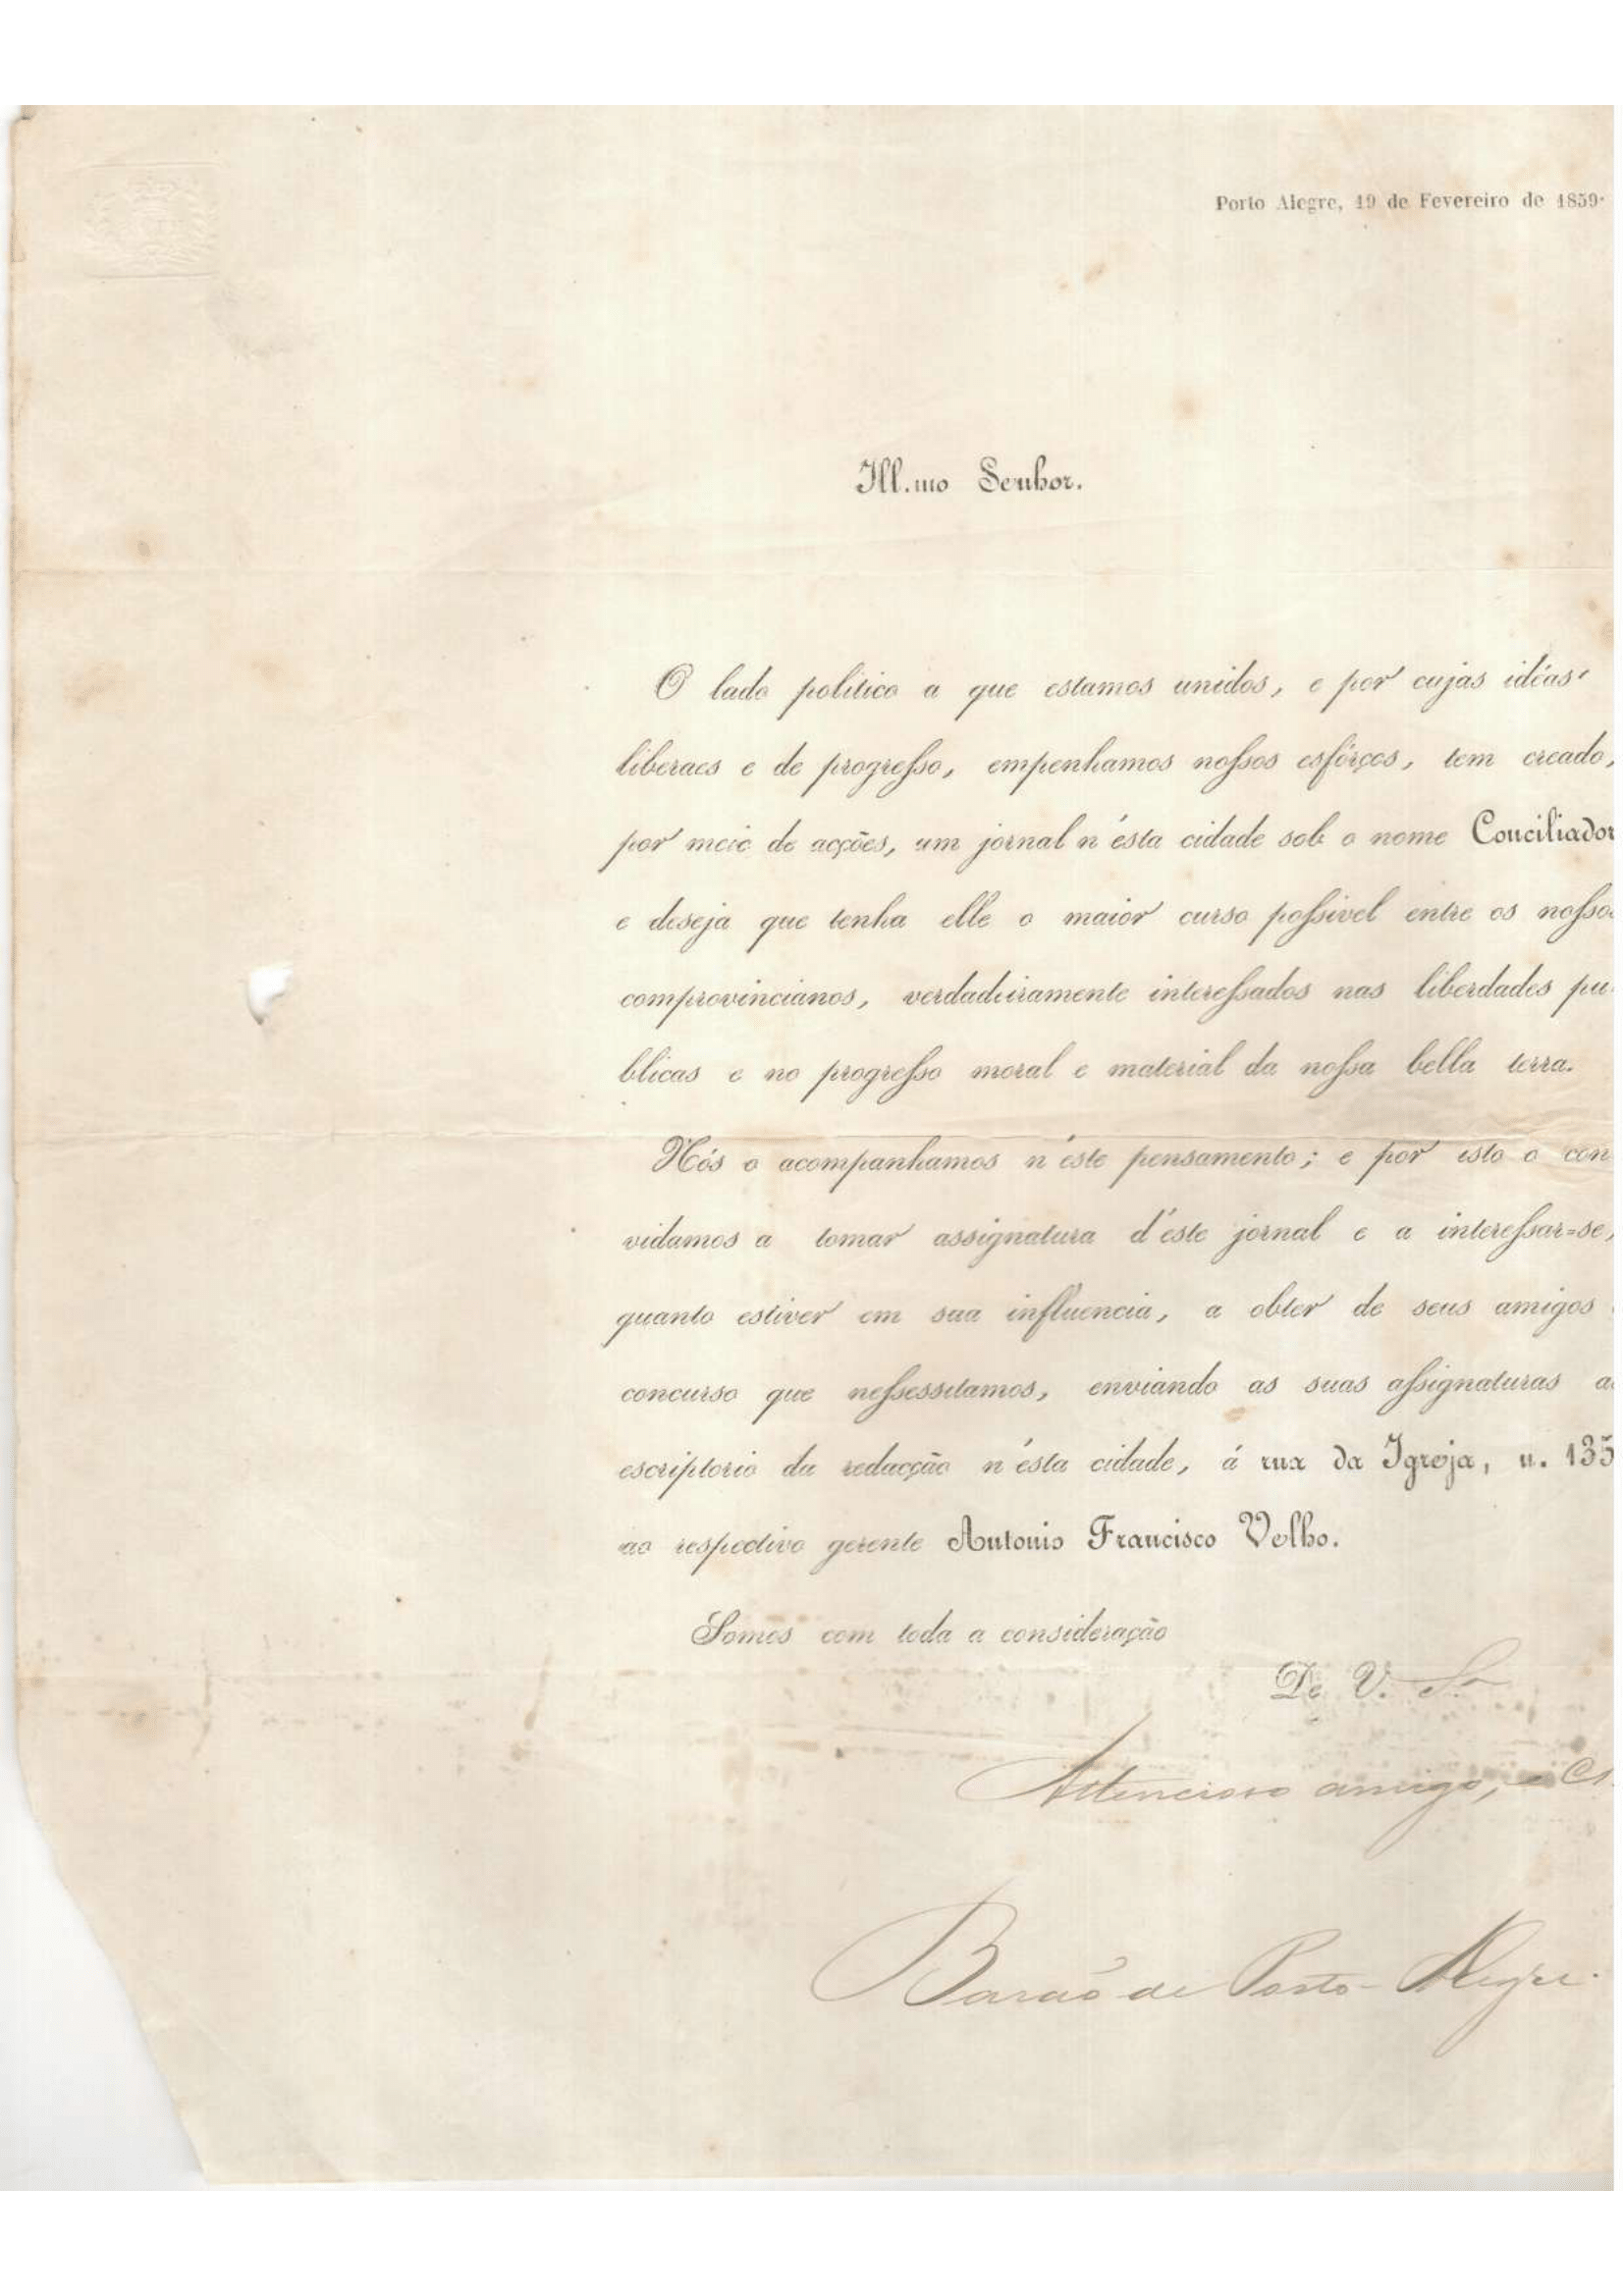 Porto Alegre, 19 de Fevereiro de 1859.
Ill.mo Senhor.
O lado politico a que estamos unidos, e por cujas idéas
liberaes e de progresso, empenhamos nossos esfórços, tem creado,
por meio de acções, um jornal n'ésta cidade sob o nome Conciliador
e deseja que tenha elle o maior curso possivel entre os nossos
comprovincianos, verdadeiramente interessados nas liberdades pu-
blicas e no progresso moral e material da nossa bella terra.
Nós o acompanhamos n'éste pensamento; e por isto o con
vidamos a tomar assignatura d'éste jornal e a interessar=se,
quanto estiver em sua influencia, a obter de seus amigos
concurso que nessessitamos, enviando as suas assignaturas a
escriptorio da redacção n'ésta cidade, á rua da Igreja, n. 135
ao respectivo gerente Antonio Francisco Velho.
Somos com toda a consideração
De V. S.ª
Attencioso amigo, e
Barão de Porto-Alegre.